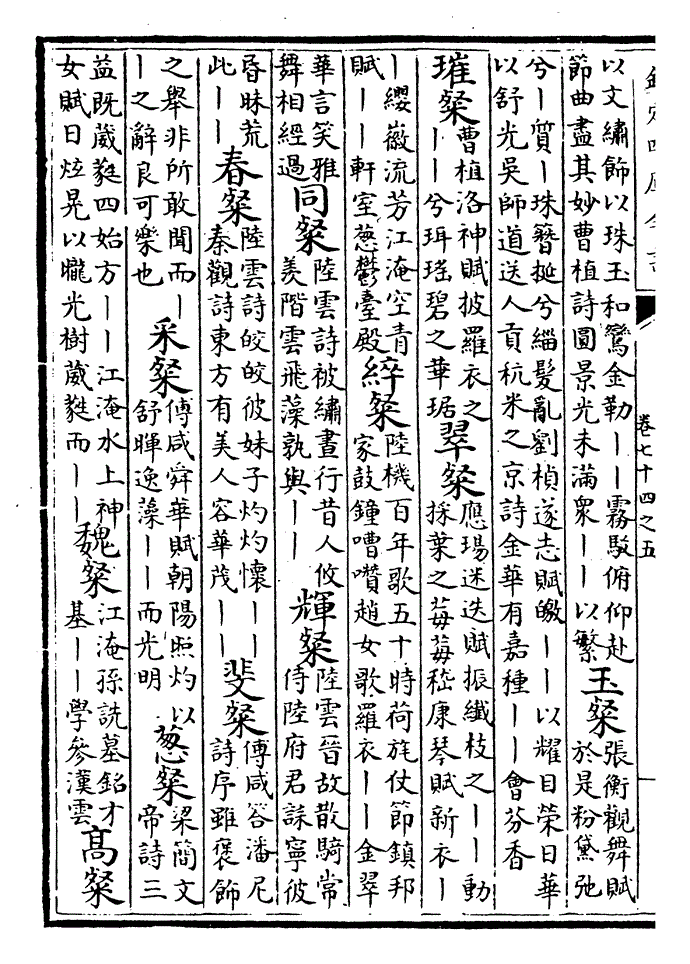 欽定四庫全書
卷七十四之五
以文繡飾以珠玉和鸞金勒丨丨霧駮俯仰赴
節曲盡其妙曹植詩圓景光未滿衆丨丨以繁
玉粲
張衡觀舞賦
於是粉黛弛
兮丨質丨珠簪挻兮緇髮亂劉楨遂志賦皦丨丨以耀目榮日華
以舒光吳師道送人貢秔米之京詩金華有嘉種丨丨會芬香
璀粲
曹植洛神賦披羅衣之
丨丨兮珥瑤碧之華琚
翠粲
應瑒迷迭賦振纖枝之丨丨動
採葉之莓莓嵇康琴賦新衣丨
丨纓徽流芳江淹空青
賦丨丨軒室葱鬱臺殿
綷粲
陸機百年歌五十時荷旄仗節鎮邦
家鼓鐘嘈囋趙女歌羅衣丨丨金翠
華言笑雅
舞相經過
同粲
陸雲詩被繡晝行昔人攸
羡階雲飛藻孰與丨丨
輝粲
陸雲晉故散騎常
侍陸府君誄寧彼
昏昧荒
此丨丨
春粲
陸雲詩皎皎彼妹子灼灼懷丨丨
秦觀詩東方有美人容華茂丨丨
斐粲
傅咸答潘尼
詩序雖褒飾
之舉非所敢聞而丨
丨之辭良可樂也
采粲
傅咸舜華賦朝陽照灼以
舒暉逸藻丨丨而光明
葱粲
梁簡文
帝詩三
益既葳蕤四始方丨丨江淹水上神
女賦日炫晃以朧光樹葳蕤而丨丨
魏粲
江淹孫詵墓銘才
基丨丨學參漢雲
高粲